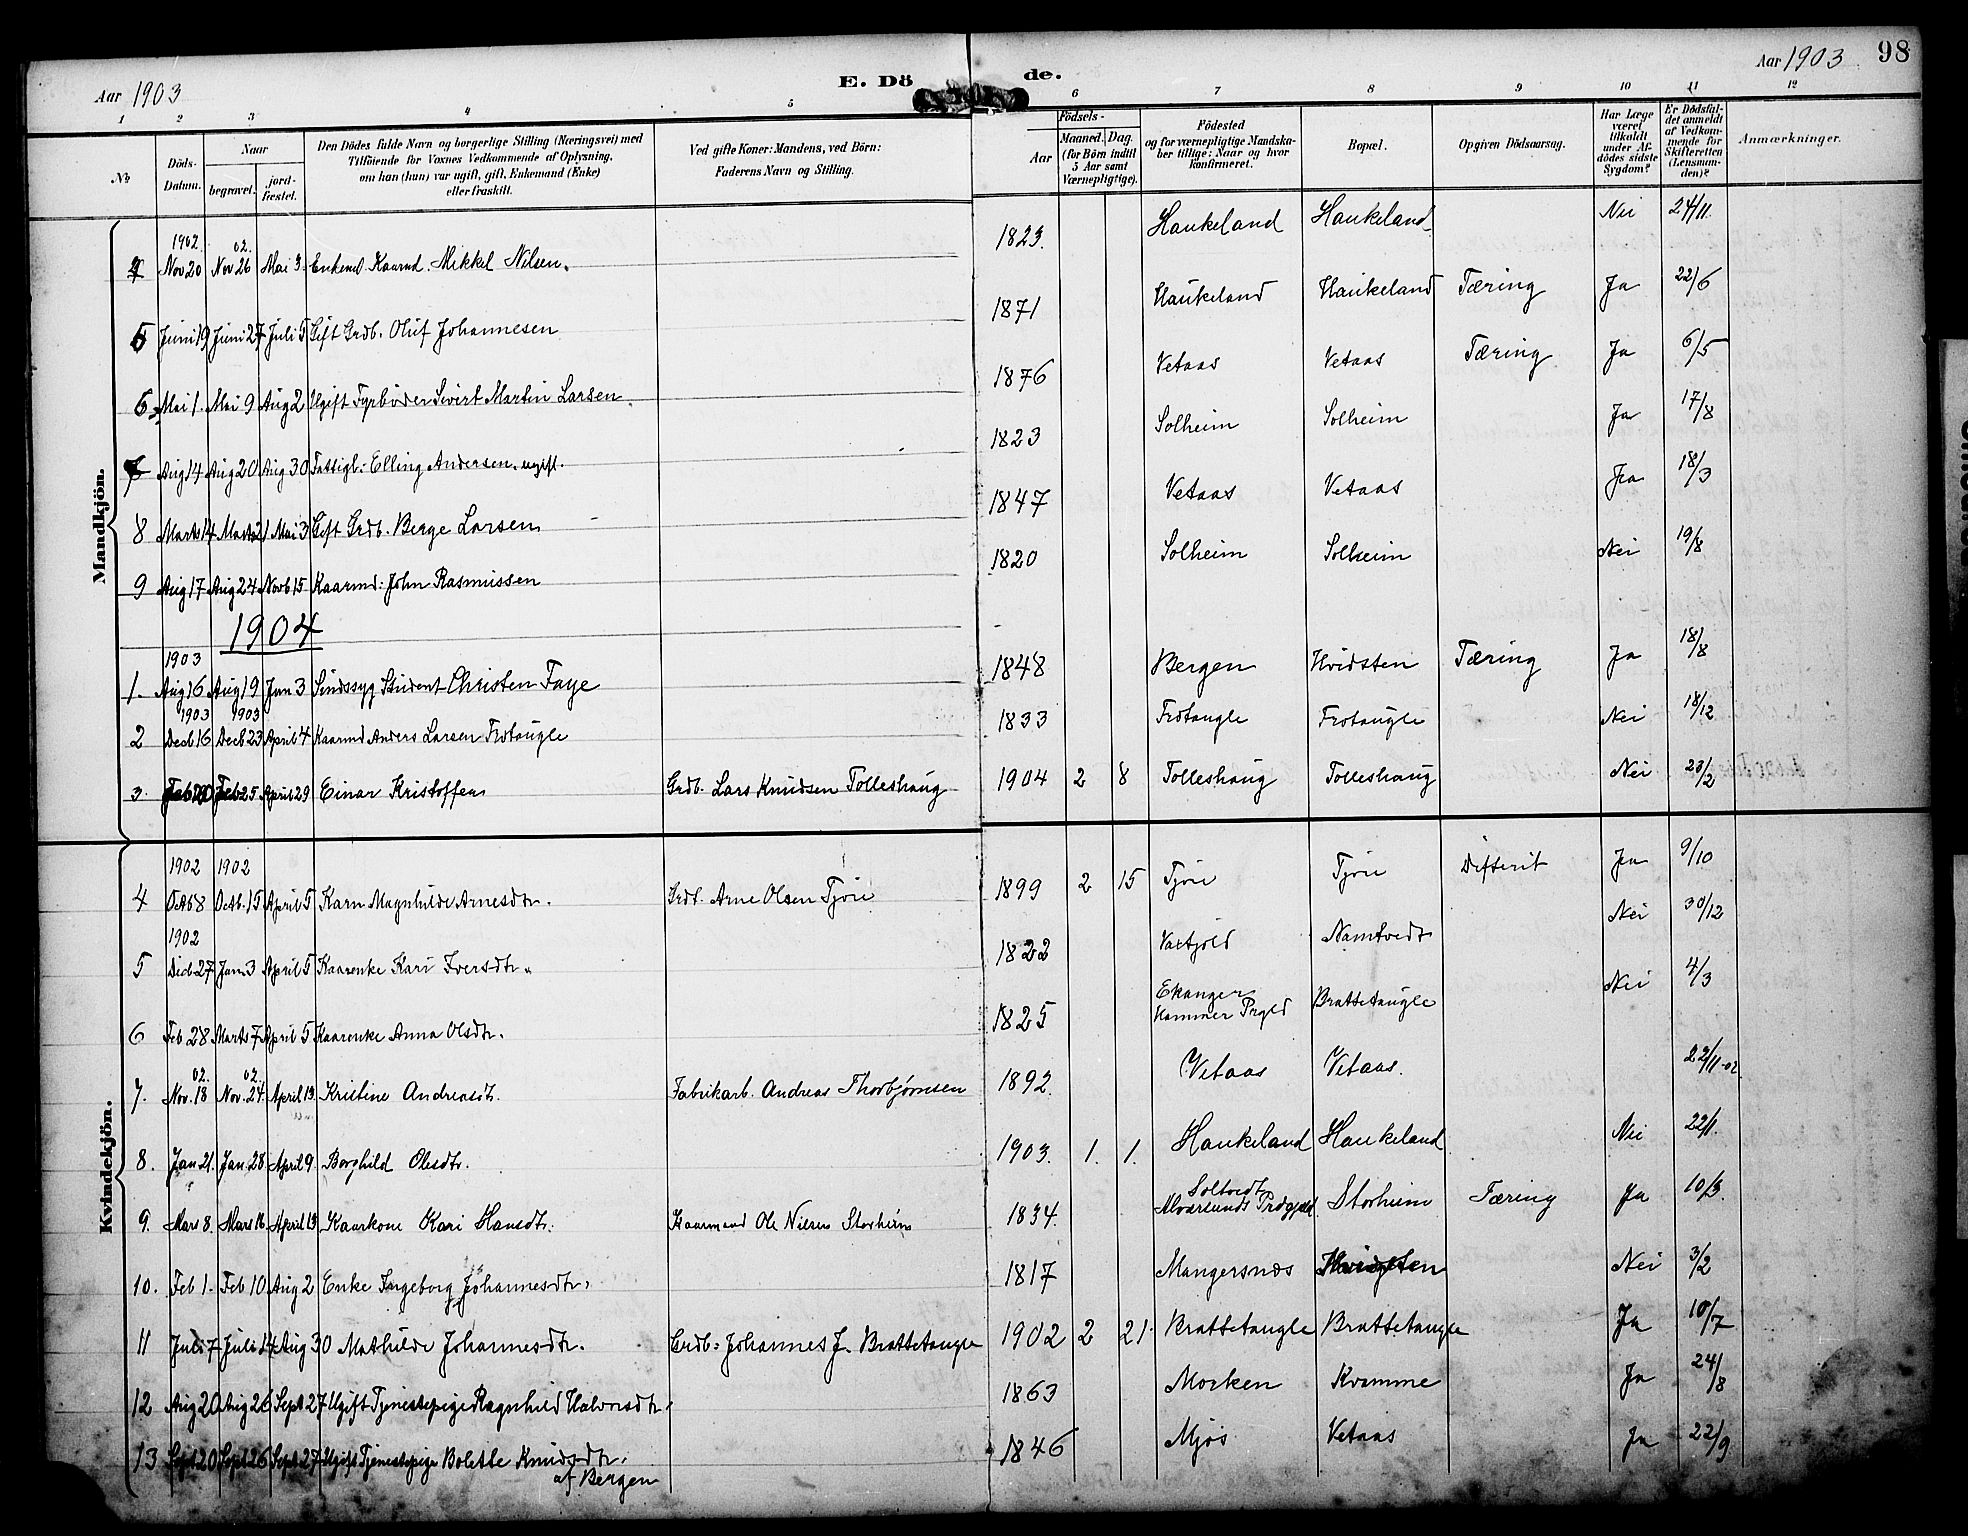 Aar 1903
E. Dö
de.
Aar 1903
98
1 2 3 4 5 6 7 8 9 10 11 12
No
Döds-Datum.
Naar
begravet.
jord-fæstet.
Den Dödes fulde Navn og borgerlige Stilling (Næringsvei) med
Tilföiende for Voxnes Vedkommende af Oplysning,
om han (hun) var ugift, gift, Enkemand (Enke)
eller fraskilt.
Ved gifte Koner: Mandens, ved Börn:
Faderens Navn og Stilling.
Födsels-
Aar
Maaned. Dag.
(for Börn indtil
5 Aar samt
Værnepligtige).
Födested
og for værnepligtige Mandska-
ber tillige: Naar og hvor
konfirmeret.
Bopæl.
Opgiven Dödsaarsag.
Har Læge
været
tilkaldt
under Af-
dödes sidste
Sygdom?
Er Dödsfal-
det anmeldt
af Vedkom-
mende for
Skifteretten
(Lensman-
den)?
Anmærkninger.
Mandkjön.
4 1902. Nov 20 02. Nov 26 Mai 3. Enkemd. Kaarmd. Mikkel Nilsen. 1823. Haukeland Haukeland Nei 24/11.
5 Juni 19 Juni 27 Juli 5 Gift Grdb. Oluf Johannesen 1871 Haukeland Haukeland Tæring Ja 22/6
6 Mai 1. Mai 9 Aug 2 Ugift Fyrbøder Sivert Martin Larsen. 1876 Vetaas Vetaas Tæring Ja 6/5
7 Aug 14 Aug 20 Aug 30 Fattigl: Elling Andersen. ugift. 1823 Solheim Solheim Ja 17/8
8 Marts 14 Marts 21 Mai 3 Gift Grdb. Berge Larsen 1847 Vetaas Vetaas Ja 18/3
9 Aug 17 Aug 24 Novb 15 Kaarmd: John Rasmussen 1820 Solheim Solheim Nei 19/8
1904
1. 1903 Aug 16 Aug 19 Jan 3 Sindssyg Student Christen Faye 1848 Bergen Hvidsten Tæring Ja 18/8
2 1903 Decb 16 1903 Decb 23 April 4 Kaarmd Anders Larsen Frotaugle 1833 Frotaugle Frotaugle Nei 18/12
3. Feb 20 Feb 25 April 29 Einar Kristoffer Grdb. Lars Knudsen Tolleshaug 1904 2 8 Tolleshaug Tolleshaug Nei 23/2
Kvindekjön.
4 1902 Octb 8 1902 Octb. 15 April 5 Karn Magnhilde Arnesdtr. Grdb. Arne Olsen Tjore 1899 2 15 Tjore Tjore Difterit Ja 9/10
5 1902 Decb 27 Jan 3 April 5 Kaarenke Kari Iversdtr. 1822 Namtvedt Nei 30/12
6 Feb 28 Marts 7 April 5 Kaarenke Anna Olsdtr. 1825 Ekanger Hammer Prgld Brattetaugle Nei 4/3
7. 02. Nov. 18 02. Nov. 24. April 13. Kristine Andreasdt. Fabrikarb. Andreas Thorbjørnsen 1892. Vetaas Vetaas. 22/11-02
8. Jan 21. Jan. 28 April 9. Borghild Olesdtr. 1903. 1. 1. Haukeland Haukeland Nei 22/1.
9. Mars 8. Mars 16 April 13 Kaarkone Kari Hansdtr. Kaarmand Ole Nilsen Storheim 1834. Soltvedt Alversunds Prdgjæld Storheim Tæring Ja 10/3.
10. Feb 1. Feb 10 Aug 2 Enke Ingeborg Johannesdtr. 1817 Mangersnæs Hvidsten Nei 3/2
11 Juli 7 Juli 14 Aug 30 Mathilde Johannesdtr. Grdb: Johannes J. Brattetaugle 1902 2 21. Brattetaugle Brattetaugle Ja 10/7
12 Aug 20 Aug 26 Sept 27 Ugift Tjenestepige Ragnhild Halvorsdtr. 1863 Morken Kvamme Ja 24/8
13 Sept 20 Sept 26 Sept 27 Ugift Tjenestepige Bolette Knudsdtr. af Bergen 1846 Mjøs Vetaas Ja 22/9